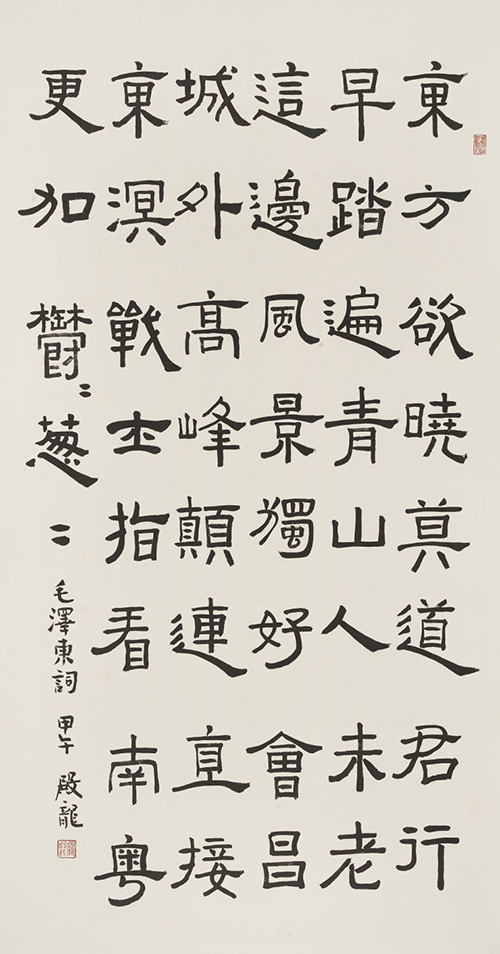 東方欲曉莫道君行
早踏遍青山人未老
這邊風景獨好會昌
城外髙峰顛連直接
東溟戰士指看南粵
更加鬱〻葱〻
毛澤東詞 甲午 殿龍